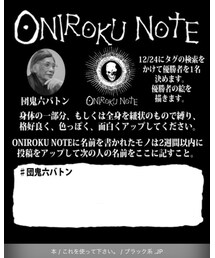 ONIROKU NOTE
12/24にタグの検索を
かけて優勝者を1名
決めます。
優勝者の絵を
描きます。
団鬼六バトン
ONIROKU NOTE
身体の一部分、もしくは全身を紐状のもので縛り、
格好良く、色っぽく、面白くアップしてください。
ONIROKU NOTEに名前を書かれたモノは2週間以内に
投稿をアップして次の人の名前をここに記すこと。
#団鬼六バトン
これを使って下さい。
ブラック系